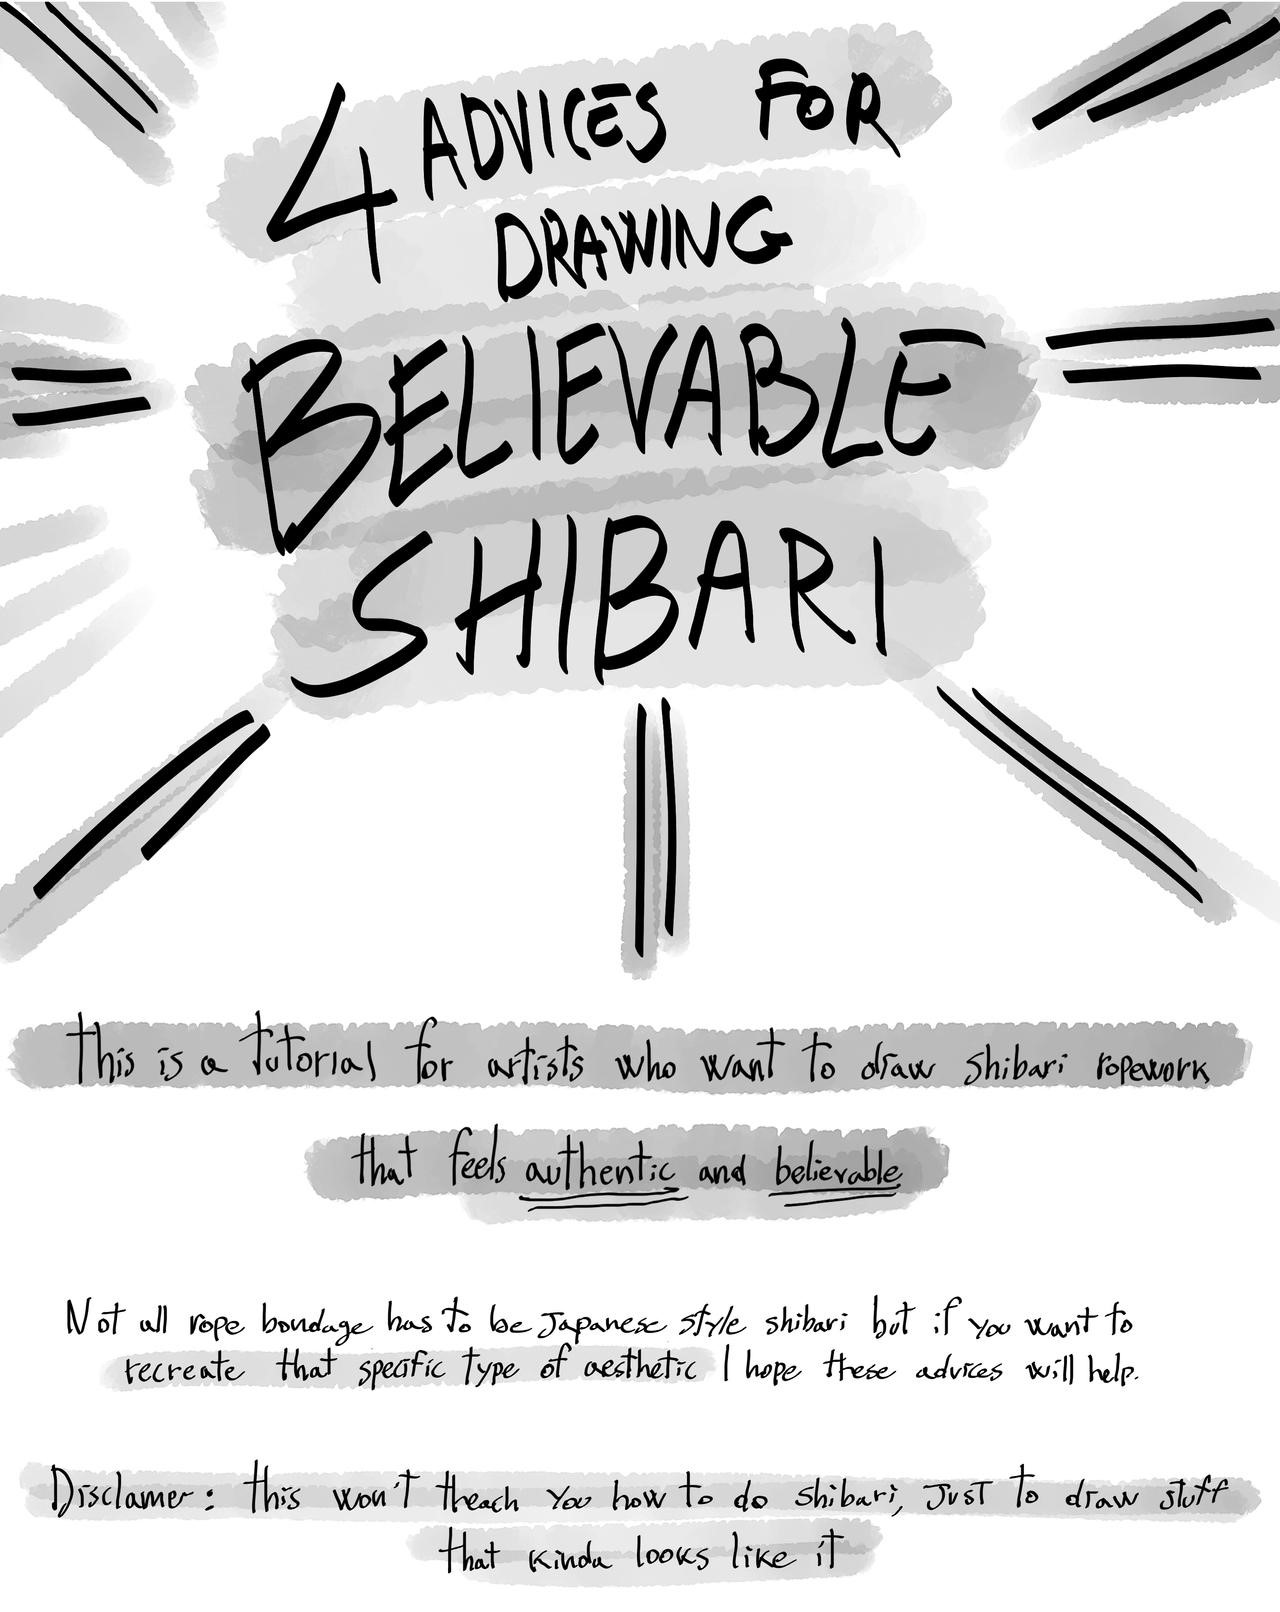 4 ADVICES FOR
DRAWING
BELIEVABLE
SHIBARI
This is a tutorial for artists who want to draw shibari ropework
that feels authentic and believable
Not all rope bondage has to be Japanese style shibari but if you want to
recreate that specific type of aesthetic I hope these advices will help.
Disclamer: this won't theach you how to do shibari, just to draw stuff
that kinda looks like it